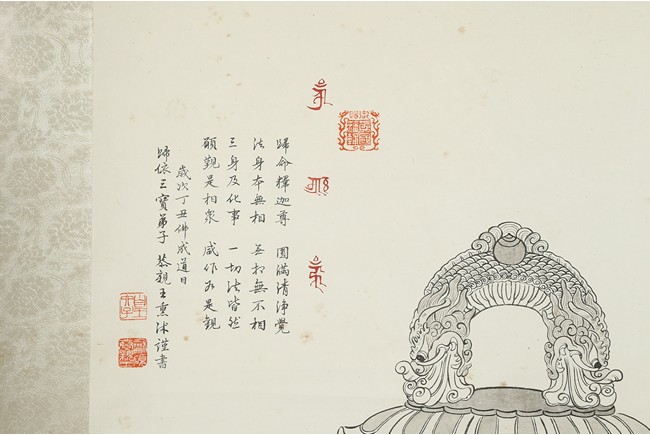 歸命釋迦尊 圓滿清淨覺
法身本無相 無不相
三身及化事 一切法皆然
願觀是相眾 咸作如是觀
歲次丁丑佛成道日
歸依三寶弟子 恭親王熏沐謹書